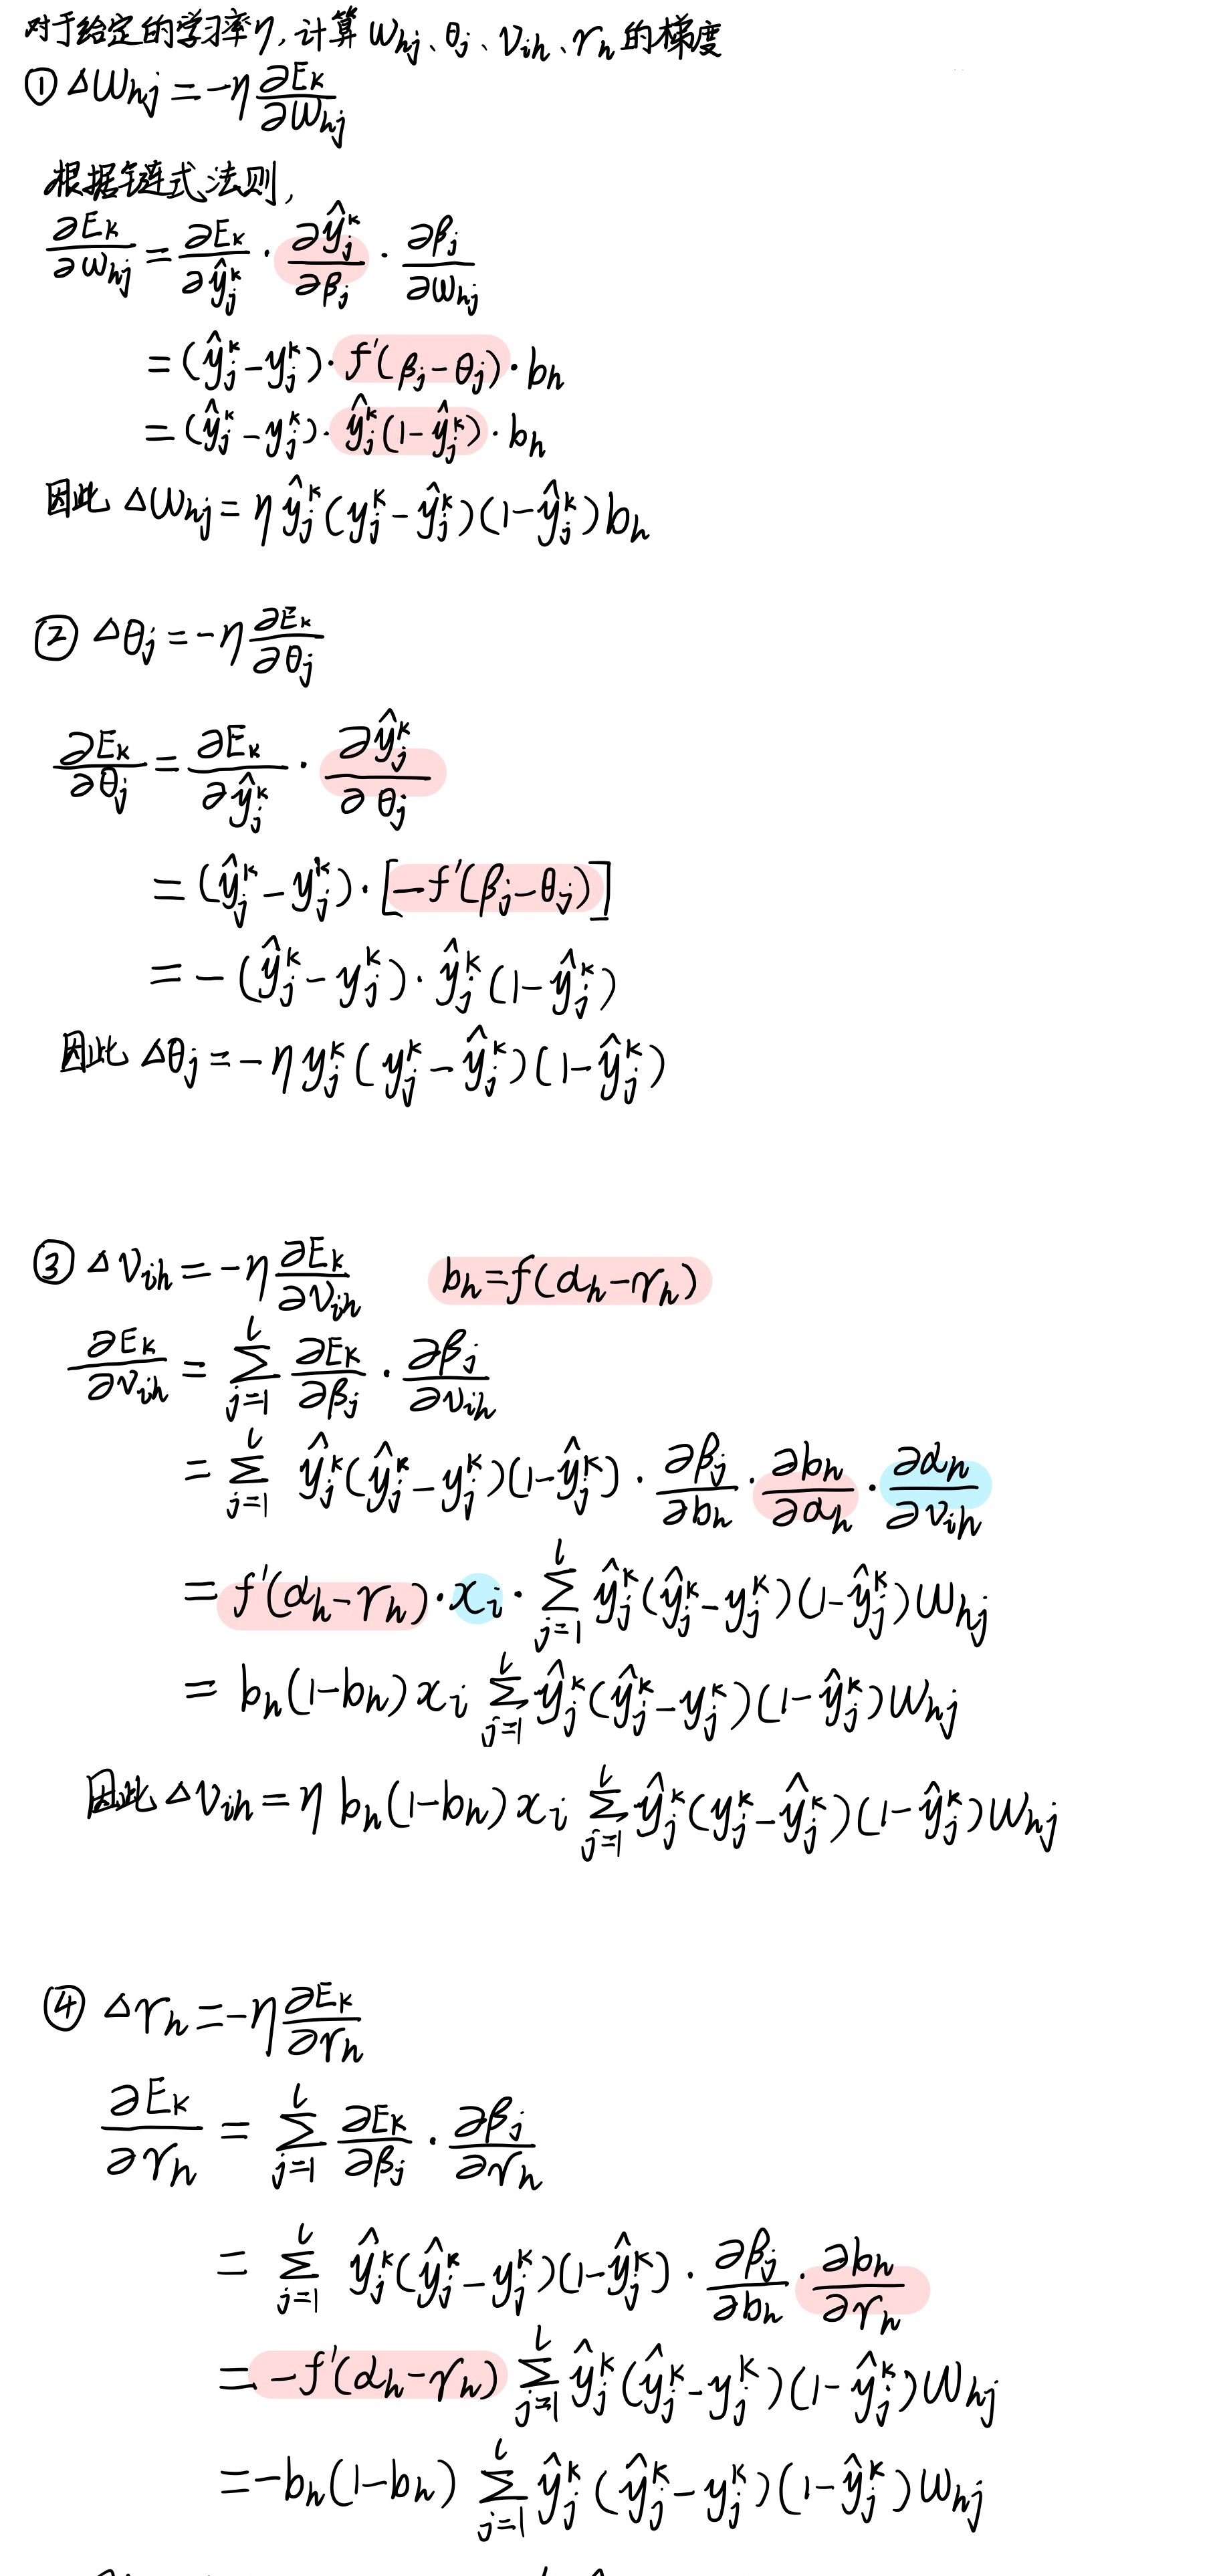 对于给定的学习率η,计算 w_hj、θ_j、v_ih、γ_h 的梯度
① Δw_hj = -η ∂E_k/∂w_hj
根据链式法则,
∂E_k/∂w_hj = ∂E_k/∂ŷ_j^k · ∂ŷ_j^k/∂β_j · ∂β_j/∂w_hj
= (ŷ_j^k - y_j^k) · f'(β_j - θ_j) · b_h
= (ŷ_j^k - y_j^k) · ŷ_j^k (1 - ŷ_j^k) · b_h
因此 Δw_hj = η ŷ_j^k (y_j^k - ŷ_j^k)(1 - ŷ_j^k) b_h
② Δθ_j = -η ∂E_k/∂θ_j
∂E_k/∂θ_j = ∂E_k/∂ŷ_j^k · ∂ŷ_j^k/∂θ_j
= (ŷ_j^k - y_j^k) · [-f'(β_j - θ_j)]
= -(ŷ_j^k - y_j^k) · ŷ_j^k (1 - ŷ_j^k)
因此 Δθ_j = -η y_j^k (y_j^k - ŷ_j^k)(1 - ŷ_j^k)
③ Δv_ih = -η ∂E_k/∂v_ih b_h = f(α_h - γ_h)
∂E_k/∂v_ih = Σ_{j=1}^{l} ∂E_k/∂β_j · ∂β_j/∂v_ih
= Σ_{j=1}^{l} ŷ_j^k (ŷ_j^k - y_j^k)(1 - ŷ_j^k) · ∂β_j/∂b_h · ∂b_h/∂α_h · ∂α_h/∂v_ih
= f'(α_h - γ_h) · x_i · Σ_{j=1}^{l} ŷ_j^k (ŷ_j^k - y_j^k)(1 - ŷ_j^k) w_hj
= b_h(1 - b_h) x_i Σ_{j=1}^{l} ŷ_j^k (ŷ_j^k - y_j^k)(1 - ŷ_j^k) w_hj
因此 Δv_ih = η b_h(1 - b_h) x_i Σ_{j=1}^{l} ŷ_j^k (y_j^k - ŷ_j^k)(1 - ŷ_j^k) w_hj
④ Δγ_h = -η ∂E_k/∂γ_h
∂E_k/∂γ_h = Σ_{j=1}^{l} ∂E_k/∂β_j · ∂β_j/∂γ_h
= Σ_{j=1}^{l} ŷ_j^k (ŷ_j^k - y_j^k)(1 - ŷ_j^k) · ∂β_j/∂b_h · ∂b_h/∂γ_h
= -f'(α_h - γ_h) Σ_{j=1}^{l} ŷ_j^k (ŷ_j^k - y_j^k)(1 - ŷ_j^k) w_hj
= -b_h(1 - b_h) Σ_{j=1}^{l} ŷ_j^k (ŷ_j^k - y_j^k)(1 - ŷ_j^k) w_hj